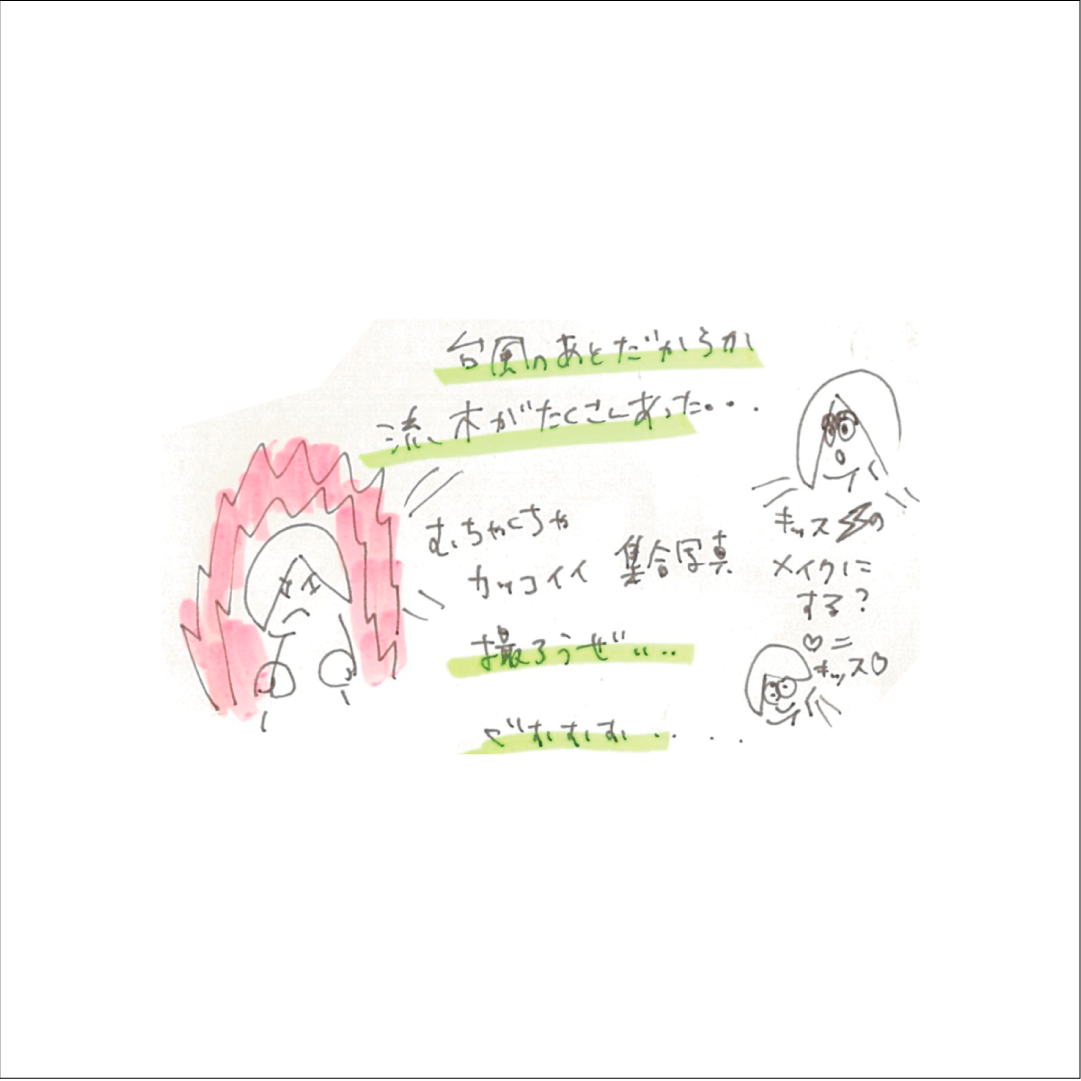 台風のあとだからか
流木がたくさんあった・・・
むちゃくちゃ
カッコイイ 集合写真
撮ろうぜ・・・・
ぐむむむ・・・・
キッス⚡の
メイクに
する?
♡ニ
キッス♡